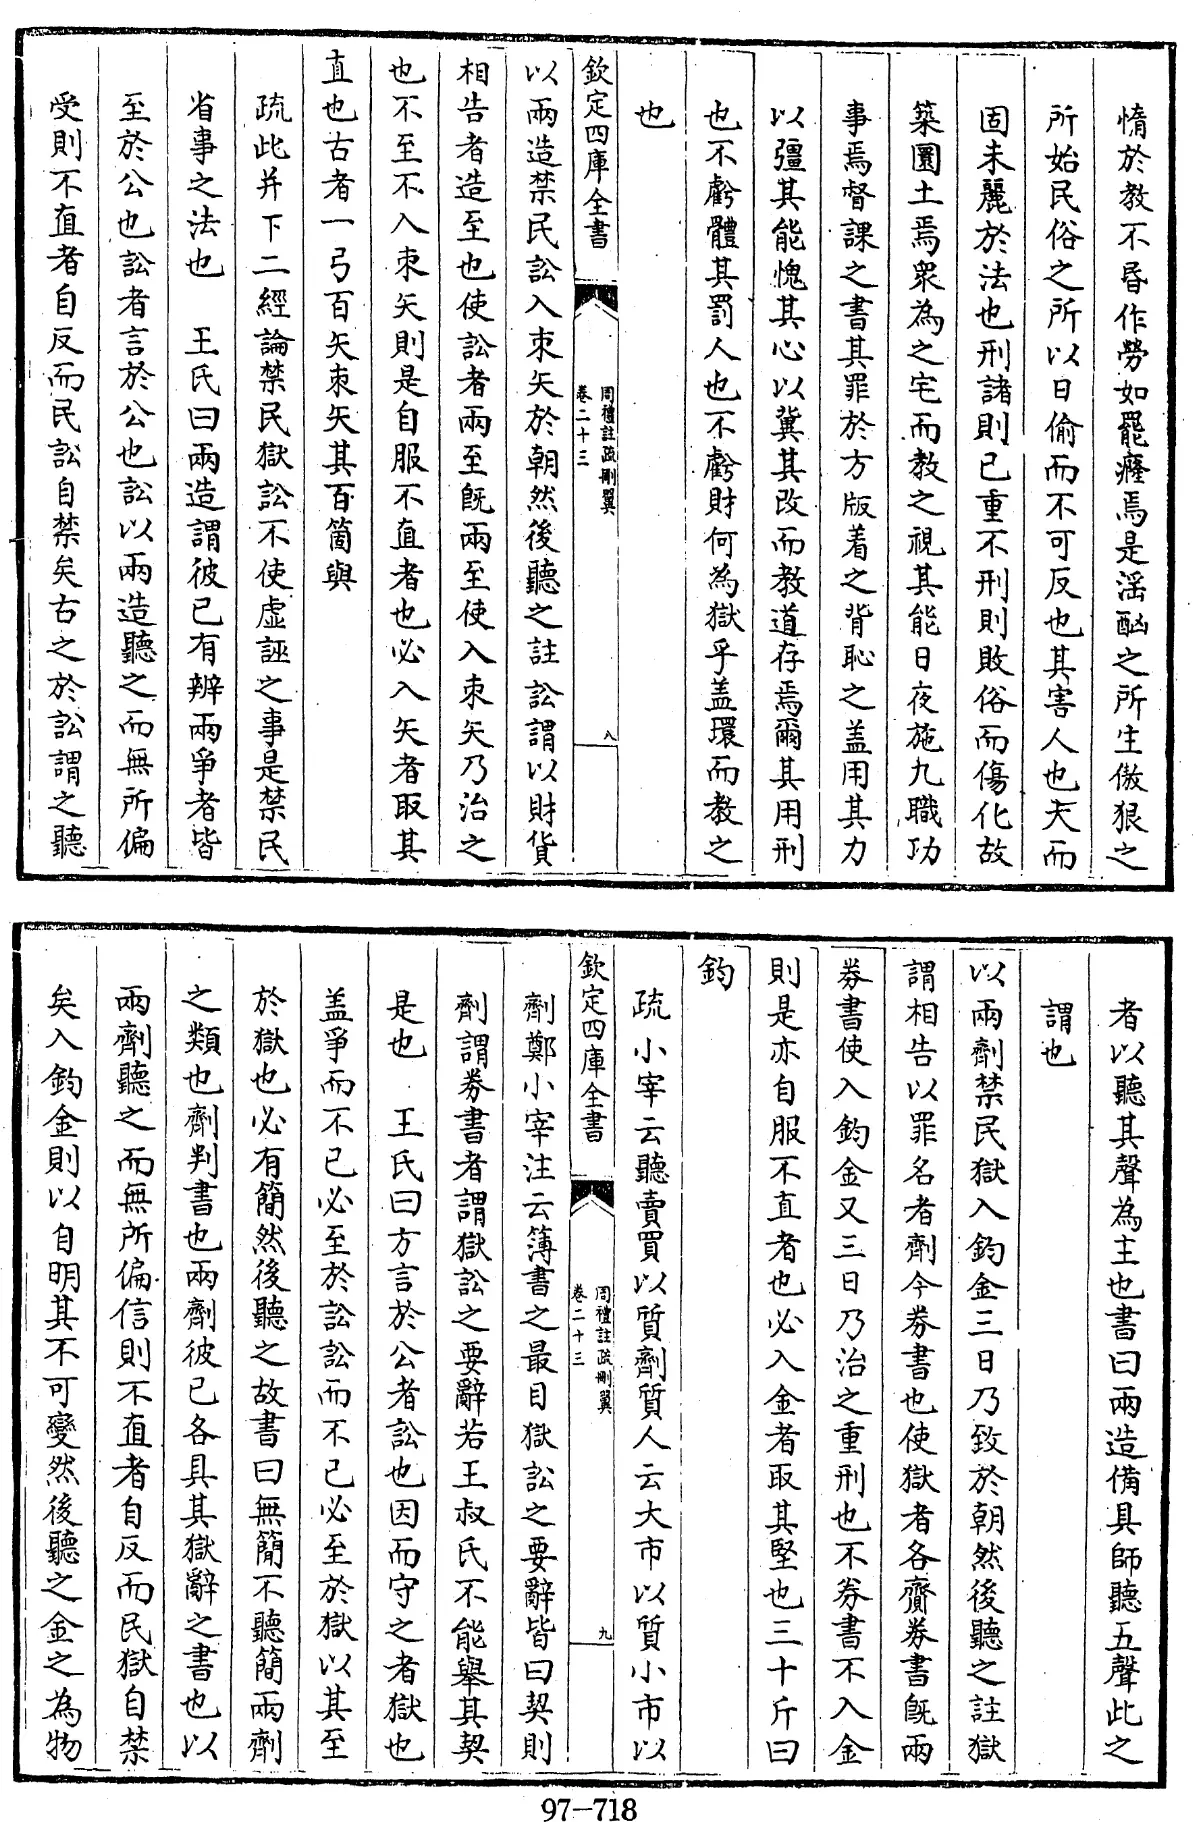 惰於教不昬作勞如罷癃焉是滛酗之所生傲狠之
所始民俗之所以日偷而不可反也其害人也夫而
固未麗於法也刑諸則已重不刑則敗俗而傷化故
築圜土焉衆為之宅而教之視其能日夜施九職功
事焉督課之書其罪於方版着之背恥之盖用其力
以彊其能愧其心以冀其改而教道存焉爾其用刑
也不虧體其罰人也不虧財何為獄乎盖環而教之
也
欽定四庫全書
周禮註疏刪翼
卷二十三
八
以兩造禁民訟入束矢於朝然後聽之註訟謂以財貨
相告者造至也使訟者兩至既兩至使入束矢乃治之
也不至不入束矢則是自服不直者也必入矢者取其
直也古者一弓百矢束矢其百箇與
疏此并下二經論禁民獄訟不使虛誣之事是禁民
省事之法也 王氏曰兩造謂彼已有辨兩爭者皆
至於公也訟者言於公也訟以兩造聽之而無所偏
受則不直者自反而民訟自禁矣古之於訟謂之聽
者以聽其聲為主也書曰兩造備具師聽五聲此之
謂也
以兩劑禁民獄入鈞金三日乃致於朝然後聽之註獄
謂相告以罪名者劑今券書也使獄者各齎券書既兩
券書使入鈞金又三日乃治之重刑也不券書不入金
則是亦自服不直者也必入金者取其堅也三十斤曰
鈞
疏小宰云聽賣買以質劑質人云大市以質小市以
欽定四庫全書
周禮註疏刪翼
卷二十三
九
劑鄭小宰注云簿書之最目獄訟之要辭皆曰契則
劑謂券書者謂獄訟之要辭若王叔氏不能舉其契
是也 王氏曰方言於公者訟也因而守之者獄也
盖爭而不已必至於訟訟而不已必至於獄以其至
於獄也必有簡然後聽之故書曰無簡不聽簡兩劑
之類也劑判書也兩劑彼已各具其獄辭之書也以
兩劑聽之而無所偏信則不直者自反而民獄自禁
矣入鈞金則以自明其不可變然後聽之金之為物
97-718